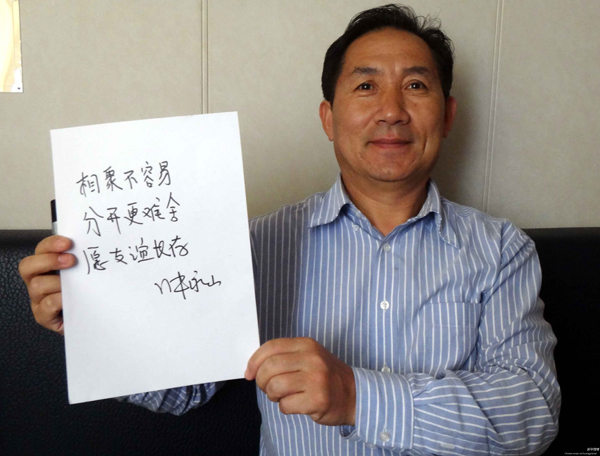 相聚不容易
分开更难舍
愿友谊长存
永山